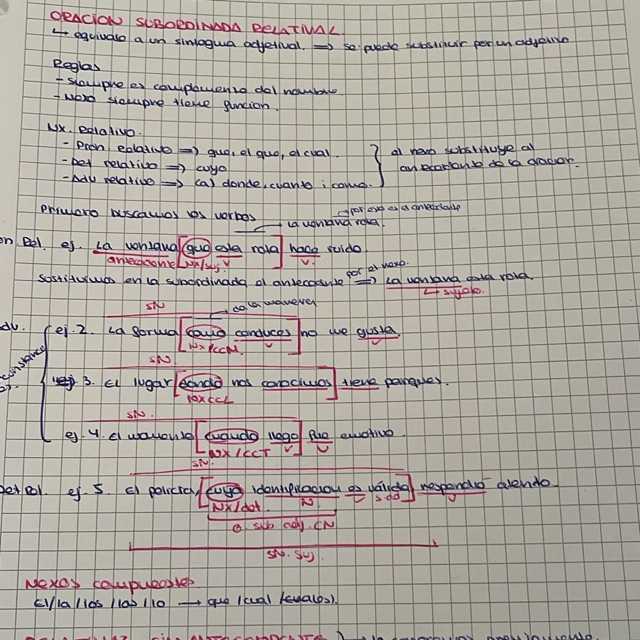 ORACIÓN SUBORDINADA RELATIVA
↳ equivale a un sintagma adjetival ⇒ se puede substituir por un adjetivo
Reglas
- siempre es complemento del nombre
- Nexo siempre tiene función.
Nx. Relativo.
- Pron relativo ⇒ que, el que, el cual.
- Det relativo ⇒ cuyo
- Adv relativo ⇒ (a) donde, cuanto i como.
el nexo substituye al antecedente de la oración.
Primero buscamos los verbos
por eso es el antecedente
la ventana rota.
ej. La ventana [que está rota] hace ruido.
antecedente Nx/suj v v
por el nexo.
sustituimos en la subordinada el antecedente ⇒ La ventana está rota.
↳ sujeto.
SN
de la manera
ej. 2. La forma [como conduces] no me gusta.
Nx/CCM v v
SN
ej 3. El lugar [donde nos conocimos] tiene parques.
nxCCL
SN.
ej. 4. el momento [cuando llegó] fue emotivo.
NX/CCT v v
SN.
Det Rel. ej. 5. El policía, [cuya identificación es válida] respondió
Nx/det. N v v
O sub adj. CN
SN. Suj
Nexos compuestos
El/la/los/las/lo → que/cual/cuales).